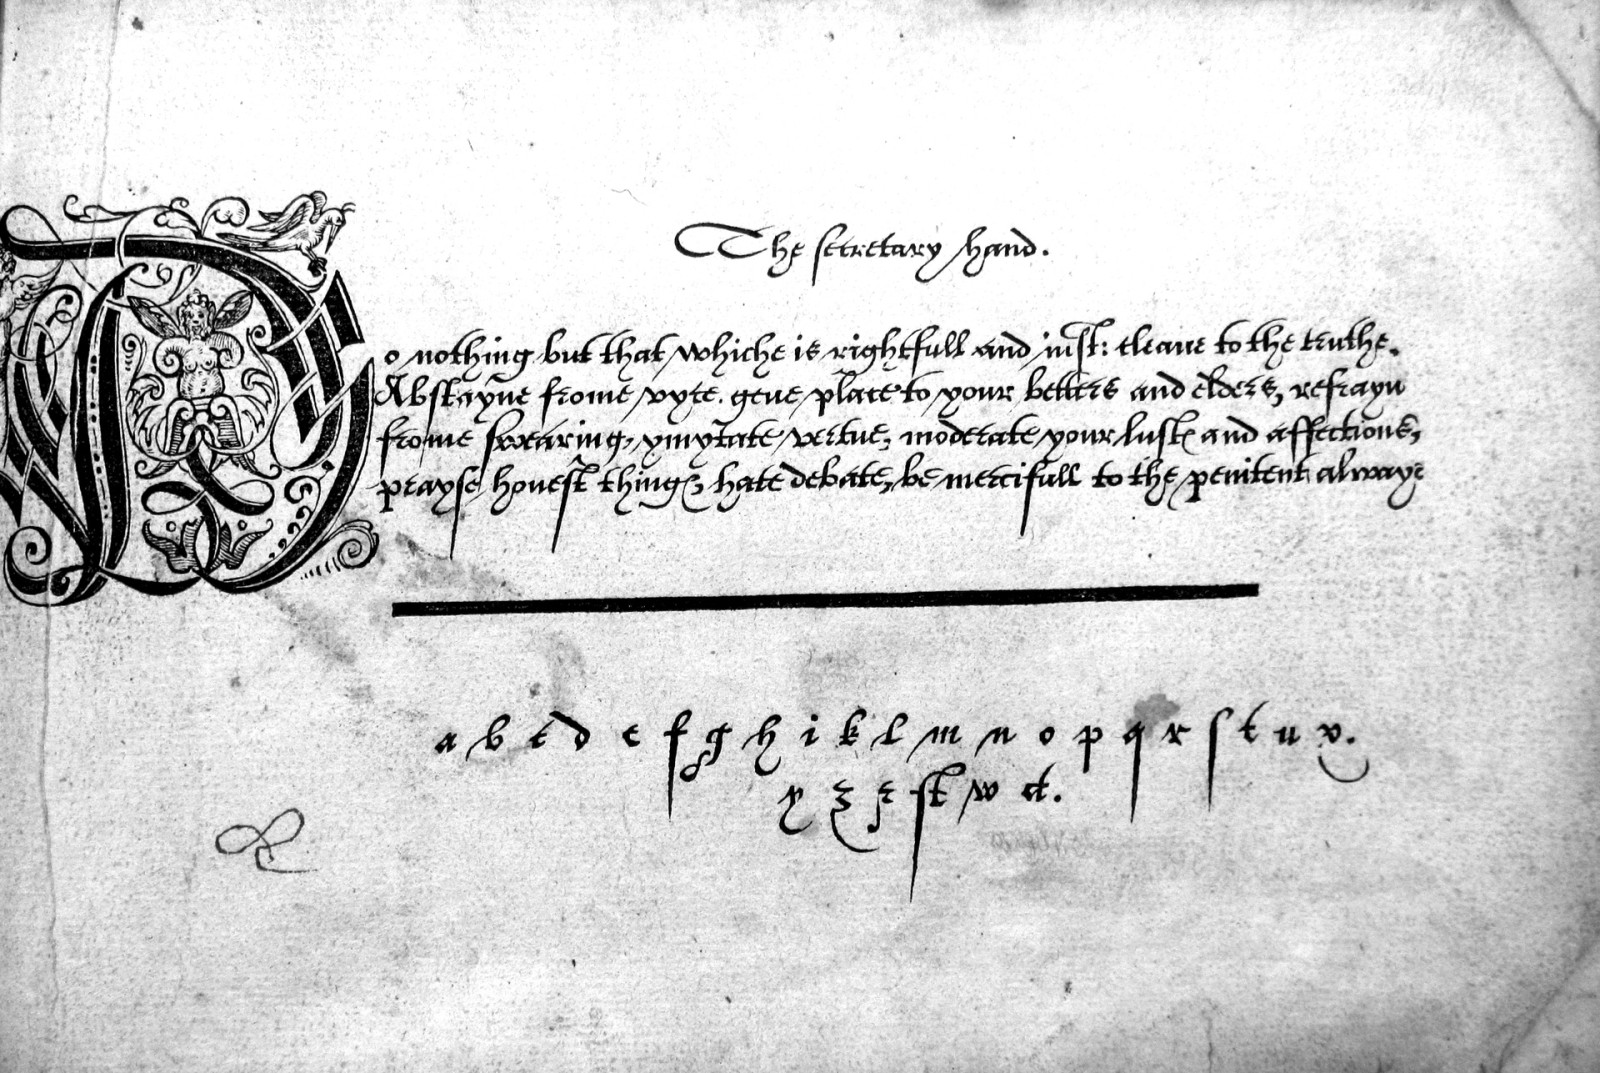 The secretary hand.
Do nothing but that whiche is rightfull and iust: cleaue to the truthe.
Abstayne frome vyce. geue place to your betters and elders, refrayn
frome swearing, ymytate vertue, moderate your lustes and affections,
prayse honest thinges, hate debate, be mercifull to the penitent alwaye
a b c d e f g h i k l m n o p q r s t u v.
y z & st w ct.